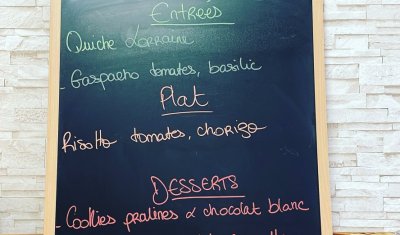 Entrées
Quiche Lorraine
- Gaspacho tomates, basilic
Plat
Risotto tomates, chorizo
DESSERTS
- Cookies pralines & chocolat blanc